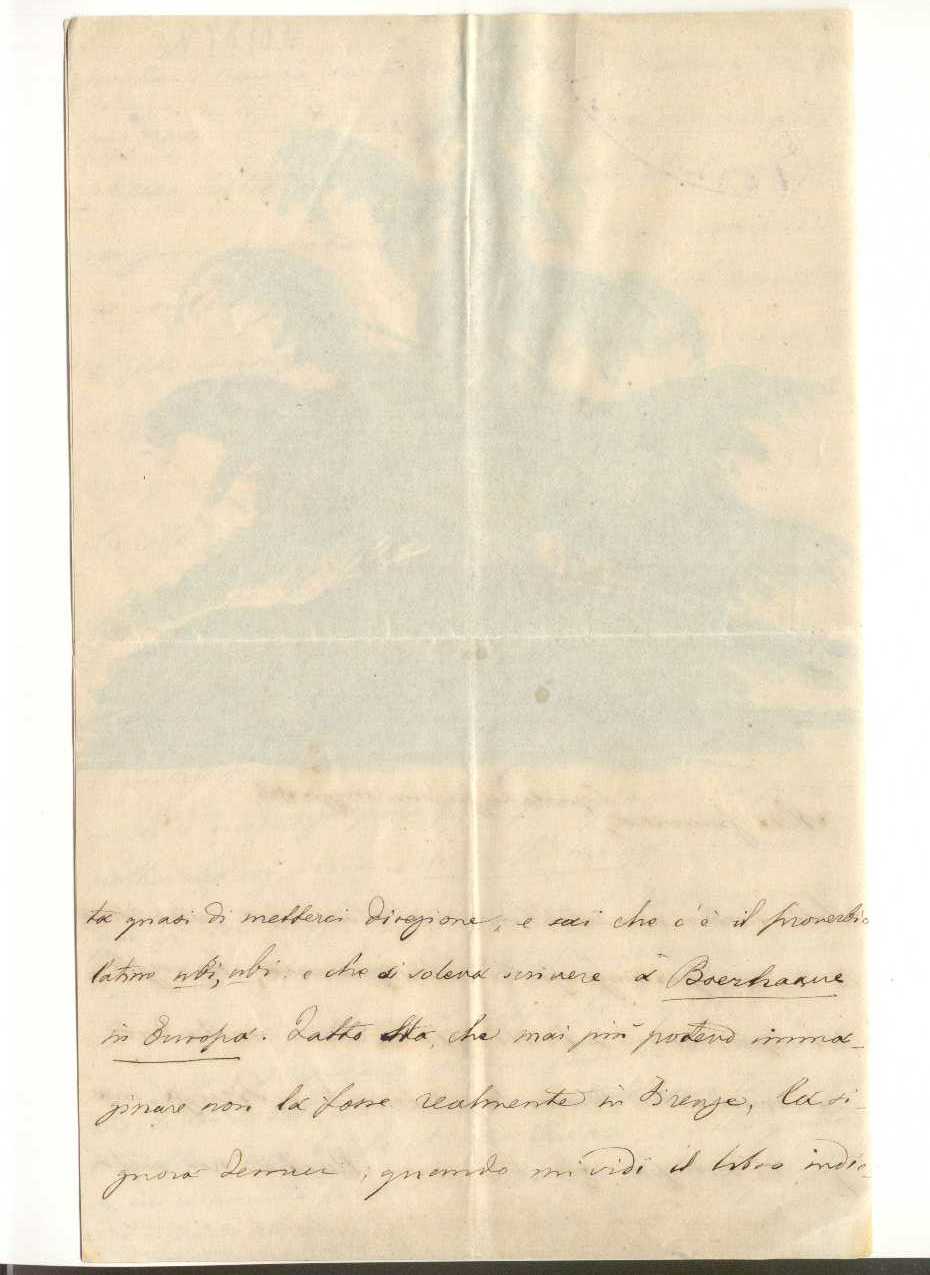 ta quasi di metterci direzione, e sai che c'è il proverbio
latino ubi, ubi: e che si soleva scrivere a Boerhaave
in Europa. Fatto sta, che mai più potevo imma-
ginare non la fosse realmente in Firenze, la si-
gnora, quando mi vidi il libro indie-